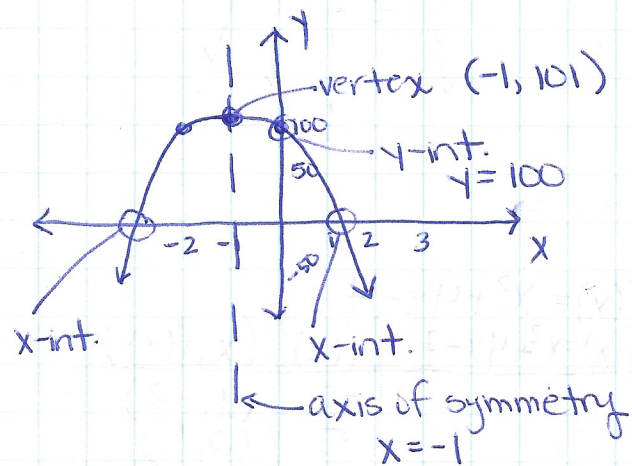 y
vertex (-1, 101)
100
y-int.
y = 100
50
-2 -1 1 2 3
x
-50
x-int.
x-int.
axis of symmetry
x = -1